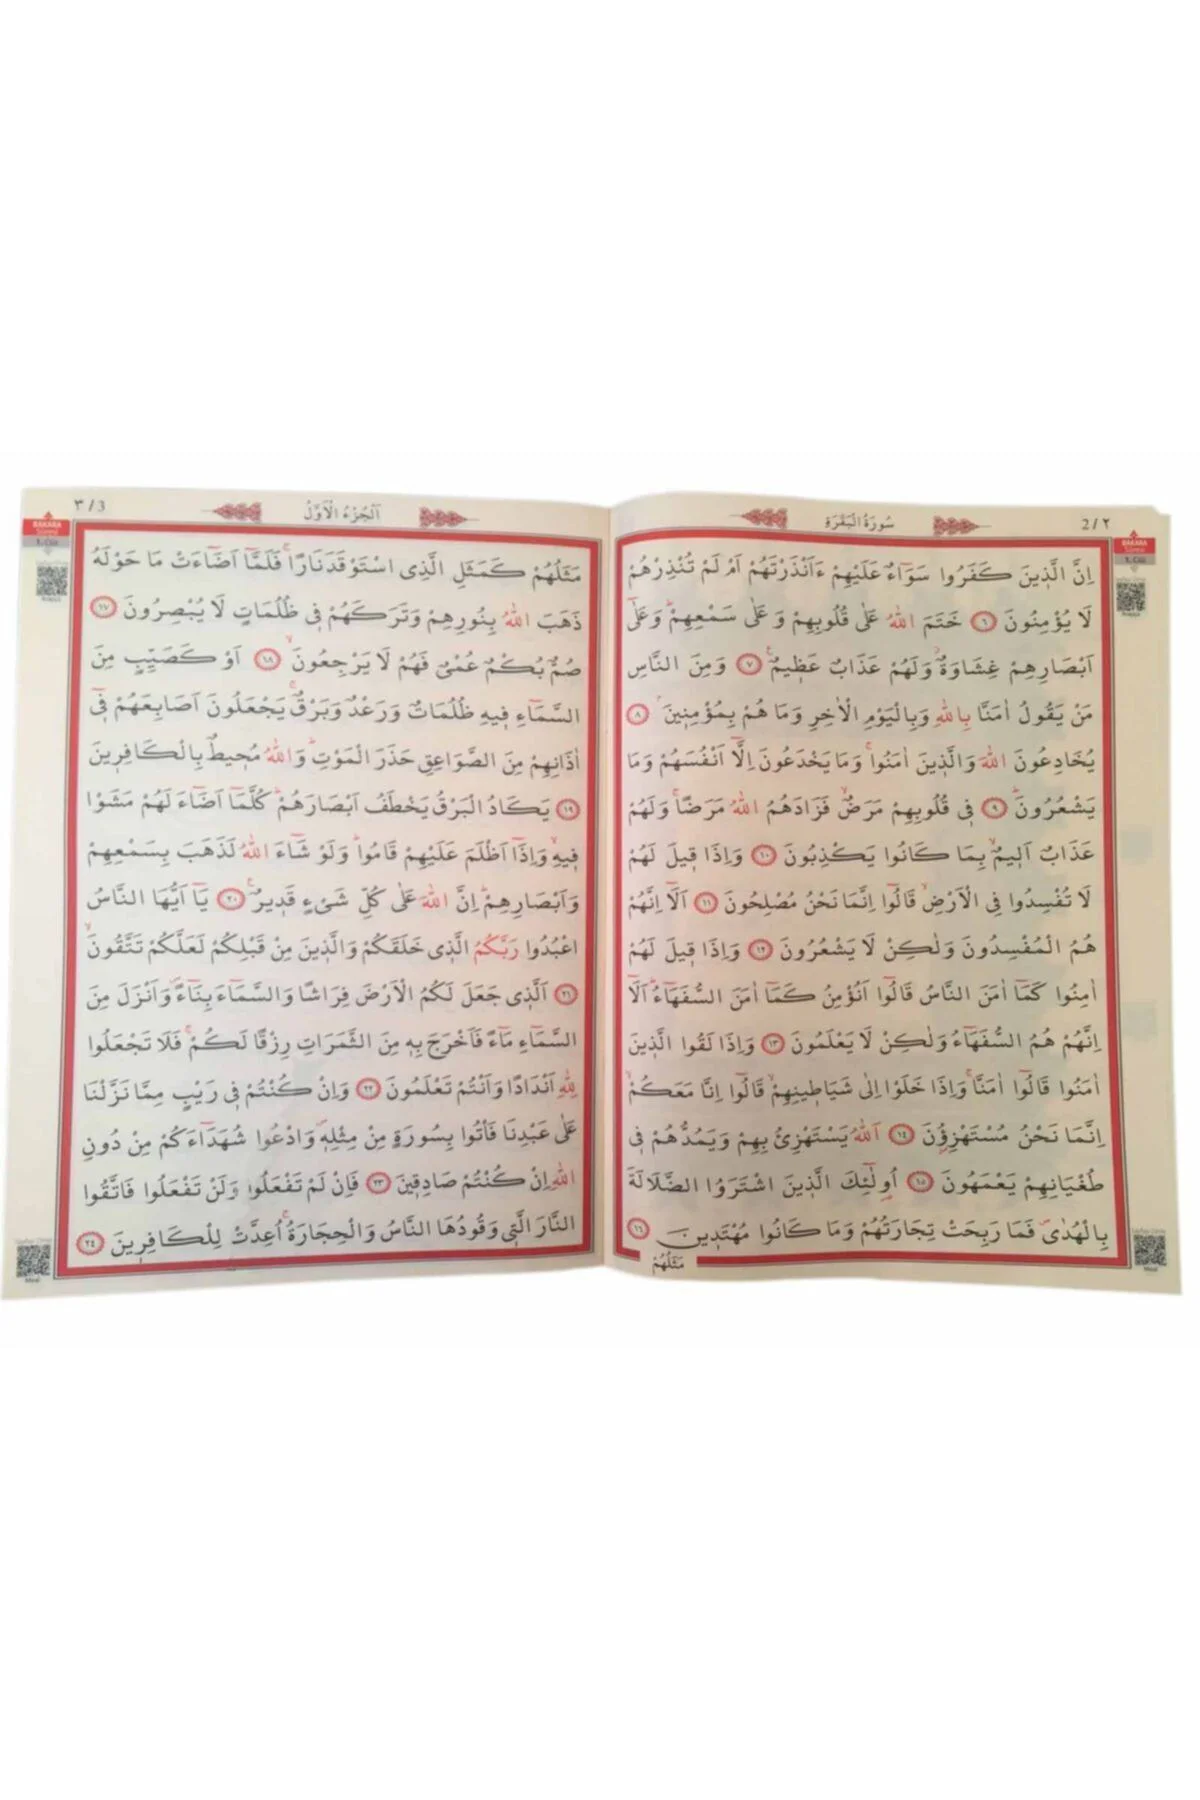 2/٢
سُورَةُ الْبَقَرَةِ
BAKARA
Sûresi
1. Cüz
اِنَّ الَّذ۪ينَ كَفَرُوا سَوَٓاءٌ عَلَيْهِمْ ءَاَنْذَرْتَهُمْ اَمْ لَمْ تُنْذِرْهُمْ
لَا يُؤْمِنُونَ ﴿٦﴾ خَتَمَ اللّٰهُ عَلٰى قُلُوبِهِمْ وَعَلٰى سَمْعِهِمْۜ وَعَلٰٓى
اَبْصَارِهِمْ غِشَاوَةٌۘ وَلَهُمْ عَذَابٌ عَظ۪يمٌ۟ ﴿٧﴾ وَمِنَ النَّاسِ
مَنْ يَقُولُ اٰمَنَّا بِاللّٰهِ وَبِالْيَوْمِ الْاٰخِرِ وَمَا هُمْ بِمُؤْمِن۪ينَۢ ﴿٨﴾
يُخَادِعُونَ اللّٰهَ وَالَّذ۪ينَ اٰمَنُواۚ وَمَا يَخْدَعُونَ اِلَّٓا اَنْفُسَهُمْ وَمَا
يَشْعُرُونَۜ ﴿٩﴾ ف۪ي قُلُوبِهِمْ مَرَضٌۙ فَزَادَهُمُ اللّٰهُ مَرَضًاۚ وَلَهُمْ
عَذَابٌ اَل۪يمٌۙ بِمَا كَانُوا يَكْذِبُونَ ﴿١٠﴾ وَاِذَا ق۪يلَ لَهُمْ
لَا تُفْسِدُوا فِي الْاَرْضِۙ قَالُٓوا اِنَّمَا نَحْنُ مُصْلِحُونَ ﴿١١﴾ اَلَٓا اِنَّهُمْ
هُمُ الْمُفْسِدُونَ وَلٰكِنْ لَا يَشْعُرُونَ ﴿١٢﴾ وَاِذَا ق۪يلَ لَهُمْ
اٰمِنُوا كَمَٓا اٰمَنَ النَّاسُ قَالُٓوا اَنُؤْمِنُ كَمَٓا اٰمَنَ السُّفَهَٓاءُۜ اَلَٓا
اِنَّهُمْ هُمُ السُّفَهَٓاءُ وَلٰكِنْ لَا يَعْلَمُونَ ﴿١٣﴾ وَاِذَا لَقُوا الَّذ۪ينَ
اٰمَنُوا قَالُٓوا اٰمَنَّاۚ وَاِذَا خَلَوْا اِلٰى شَيَاط۪ينِهِمْۙ قَالُٓوا اِنَّا مَعَكُمْۙ
اِنَّمَا نَحْنُ مُسْتَهْزِؤُ۫نَ ﴿١٤﴾ اَللّٰهُ يَسْتَهْزِئُ بِهِمْ وَيَمُدُّهُمْ ف۪ي
طُغْيَانِهِمْ يَعْمَهُونَ ﴿١٥﴾ اُو۬لٰٓئِكَ الَّذ۪ينَ اشْتَرَوُا الضَّلَالَةَ
بِالْهُدٰىۖ فَمَا رَبِحَتْ تِجَارَتُهُمْ وَمَا كَانُوا مُهْتَد۪ينَ ﴿١٦﴾
مَثَلُهُمْ
٣/3
اَلْجُزْءُ الْاَوَّلُ
BAKARA
Sûresi
1. Cüz
مَثَلُهُمْ كَمَثَلِ الَّذِي اسْتَوْقَدَ نَارًاۚ فَلَمَّٓا اَضَٓاءَتْ مَا حَوْلَهُ
ذَهَبَ اللّٰهُ بِنُورِهِمْ وَتَرَكَهُمْ ف۪ي ظُلُمَاتٍ لَا يُبْصِرُونَ ﴿١٧﴾
صُمٌّ بُكْمٌ عُمْيٌ فَهُمْ لَا يَرْجِعُونَۙ ﴿١٨﴾ اَوْ كَصَيِّبٍ مِنَ
السَّمَٓاءِ ف۪يهِ ظُلُمَاتٌ وَرَعْدٌ وَبَرْقٌۚ يَجْعَلُونَ اَصَابِعَهُمْ ف۪ٓي
اٰذَانِهِمْ مِنَ الصَّوَاعِقِ حَذَرَ الْمَوْتِۜ وَاللّٰهُ مُح۪يطٌ بِالْكَافِر۪ينَ
﴿١٩﴾ يَكَادُ الْبَرْقُ يَخْطَفُ اَبْصَارَهُمْۜ كُلَّمَٓا اَضَٓاءَ لَهُمْ مَشَوْا
ف۪يهِۙ وَاِذَٓا اَظْلَمَ عَلَيْهِمْ قَامُواۜ وَلَوْ شَٓاءَ اللّٰهُ لَذَهَبَ بِسَمْعِهِمْ
وَاَبْصَارِهِمْۜ اِنَّ اللّٰهَ عَلٰى كُلِّ شَيْءٍ قَد۪يرٌ۟ ﴿٢٠﴾ يَٓا اَيُّهَا النَّاسُ
اعْبُدُوا رَبَّكُمُ الَّذ۪ي خَلَقَكُمْ وَالَّذ۪ينَ مِنْ قَبْلِكُمْ لَعَلَّكُمْ تَتَّقُونَۙ
﴿٢١﴾ اَلَّذ۪ي جَعَلَ لَكُمُ الْاَرْضَ فِرَاشًا وَالسَّمَٓاءَ بِنَٓاءًۖ وَاَنْزَلَ مِنَ
السَّمَٓاءِ مَٓاءً فَاَخْرَجَ بِه۪ مِنَ الثَّمَرَاتِ رِزْقًا لَكُمْۚ فَلَا تَجْعَلُوا
لِلّٰهِ اَنْدَادًا وَاَنْتُمْ تَعْلَمُونَ ﴿٢٢﴾ وَاِنْ كُنْتُمْ ف۪ي رَيْبٍ مِمَّا نَزَّلْنَا
عَلٰى عَبْدِنَا فَأْتُوا بِسُورَةٍ مِنْ مِثْلِه۪ۖ وَادْعُوا شُهَدَٓاءَكُمْ مِنْ دُونِ
اللّٰهِ اِنْ كُنْتُمْ صَادِق۪ينَ ﴿٢٣﴾ فَاِنْ لَمْ تَفْعَلُوا وَلَنْ تَفْعَلُوا فَاتَّقُوا
النَّارَ الَّت۪ي وَقُودُهَا النَّاسُ وَالْحِجَارَةُۚ اُعِدَّتْ لِلْكَافِر۪ينَ ﴿٢٤﴾